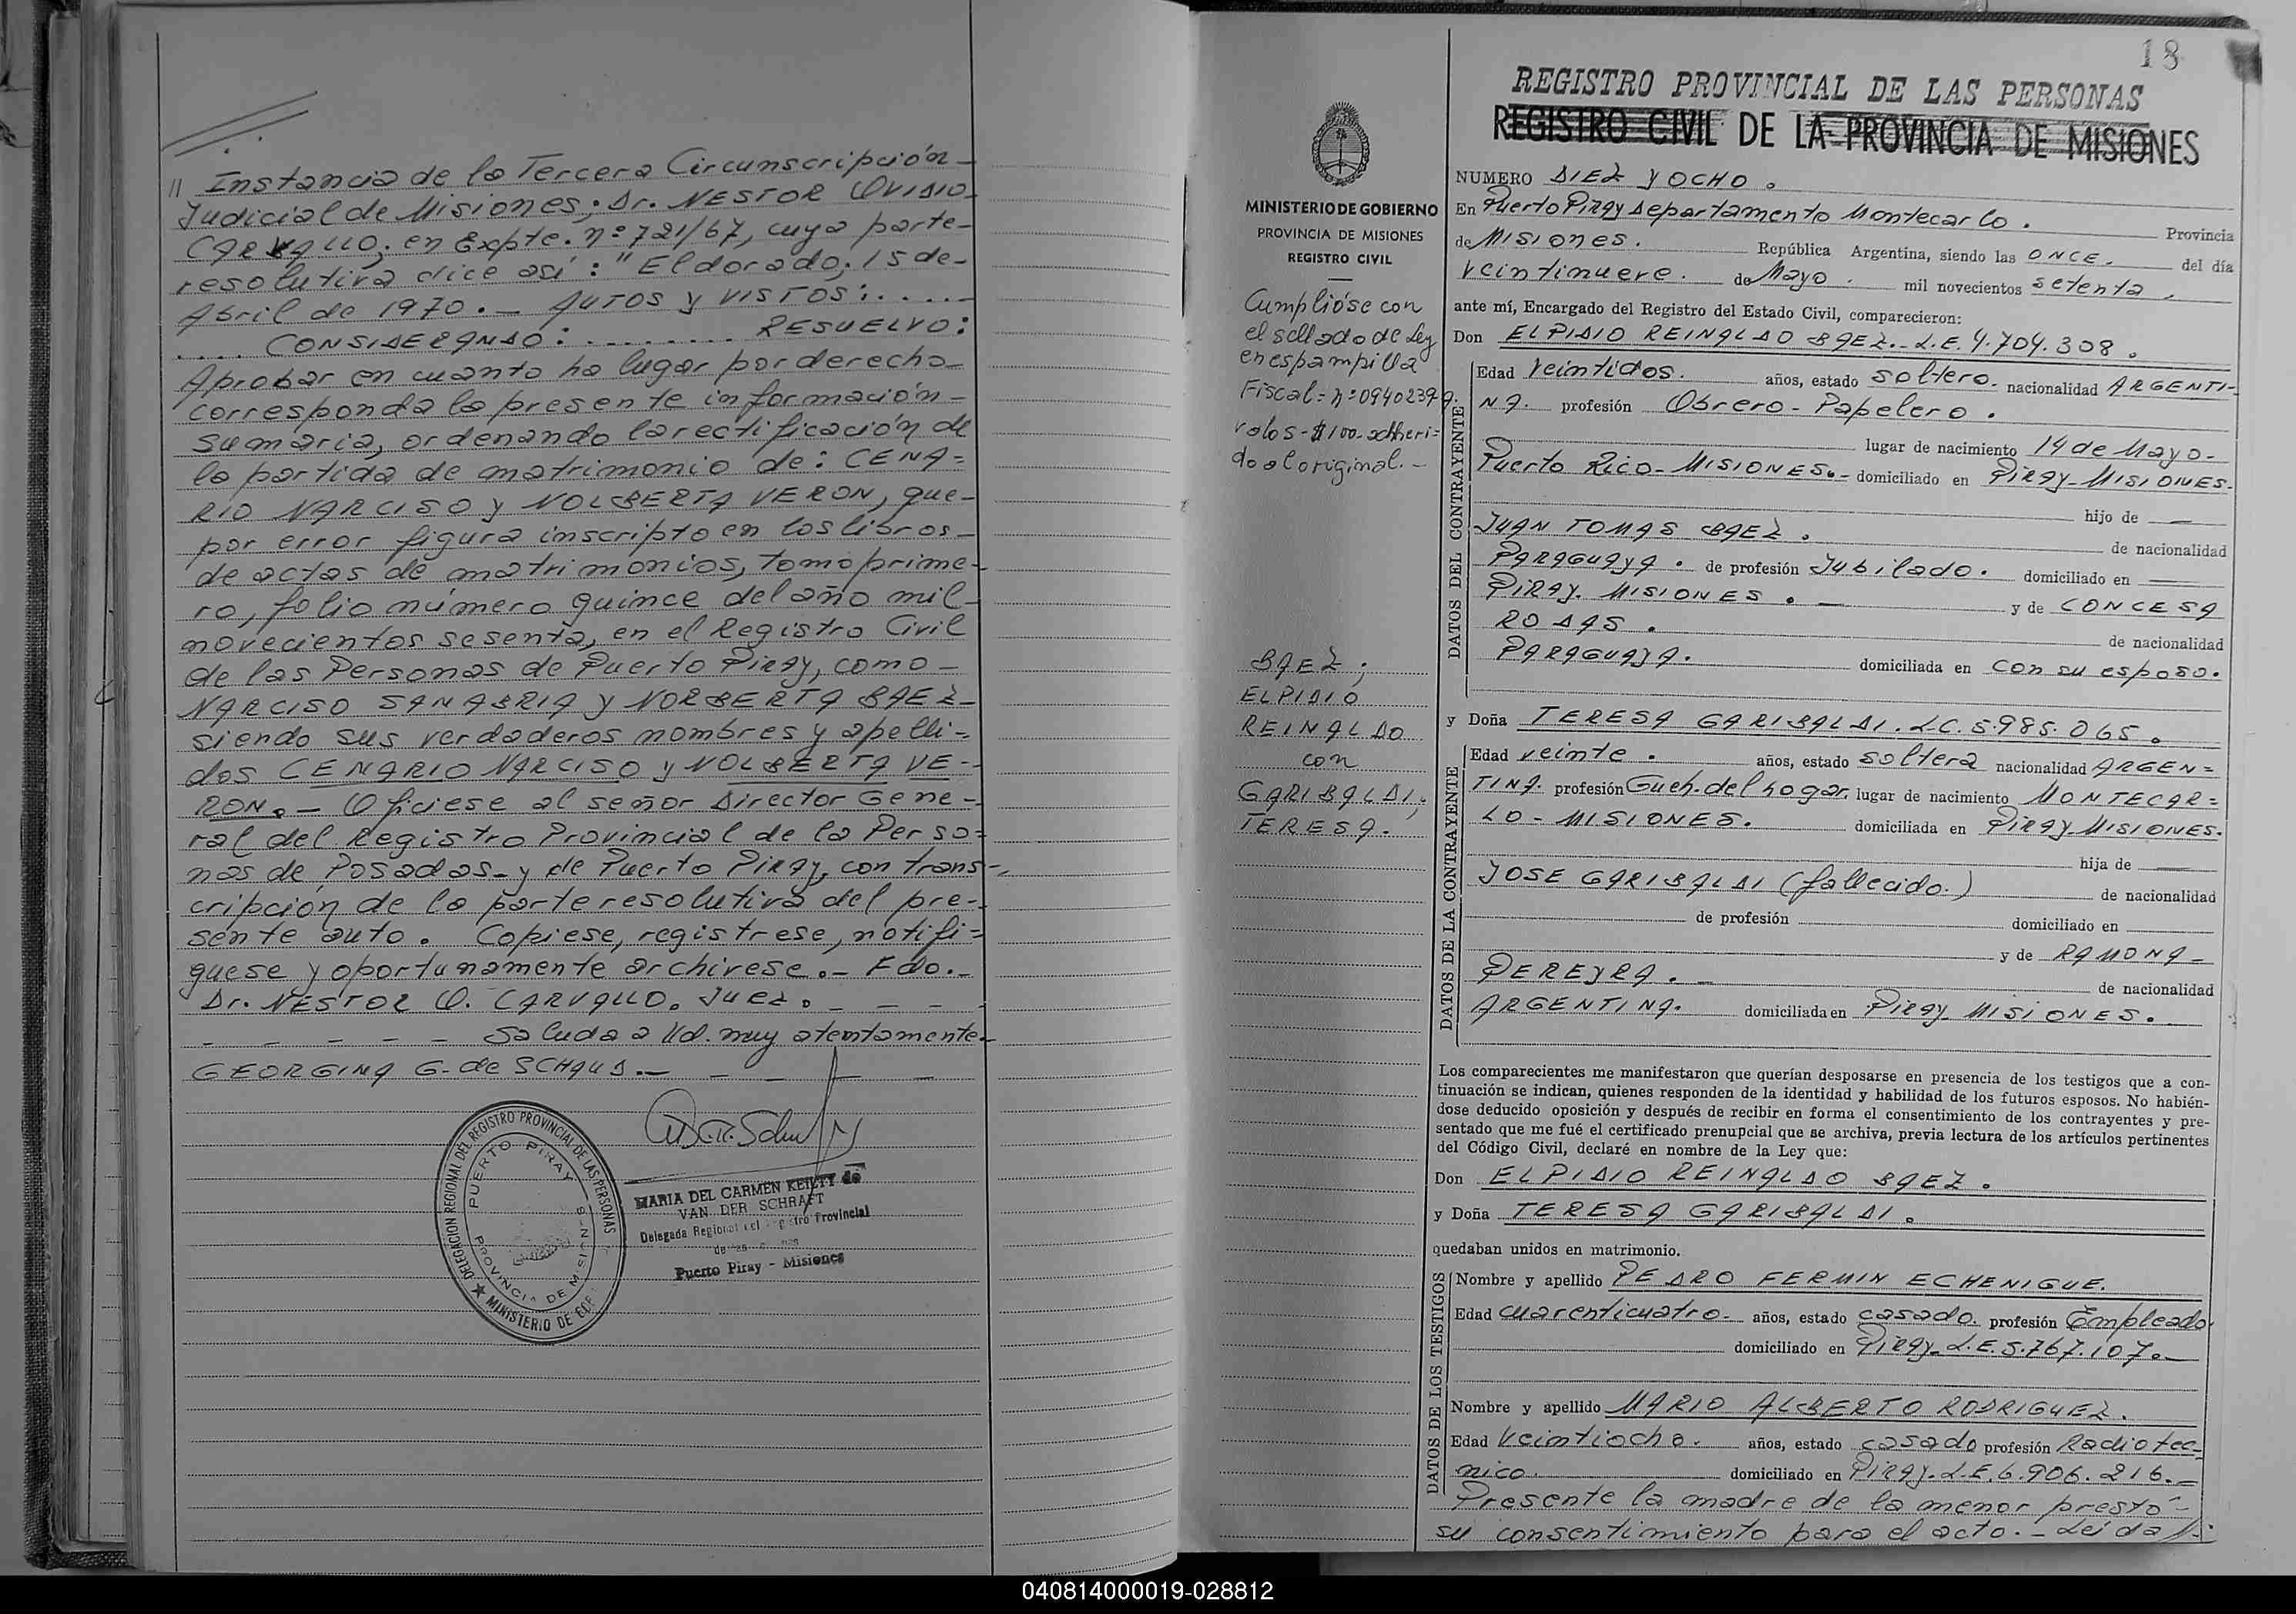 // Instancia de la Tercera Circunscripción-
Judicial de Misiones; Dr. NESTOR OVIDIO-
CARVALLO; en Expte. nº 721/67, cuya parte-
resolutiva dice así: "Eldorado; 15 de-
Abril de 1970.- AUTOS y VISTOS:.....
.... CONSIDERANDO: ........ RESUELVO:
Aprobar en cuanto ha lugar por derecho-
corresponda la presente información-
sumaria, ordenando la rectificación de
la partida de matrimonio de: CENA=
RIO NARCISO y NOLBERTA VERON, que-
por error figura inscripto en los libros-
de actas de matrimonios, tomo prime-
ro, folio número quince del año mil-
novecientos sesenta, en el Registro Civil
de las Personas de Puerto Piray, como-
NARCISO SANABRIA y NORBERTA BAEZ-
siendo sus verdaderos nombres y apelli-
dos CENARIO NARCISO y NOLBERTA VE-
RON.- Ofíciese al señor Director Gene-
ral del Registro Provincial de la Perso=
nas de Posadas- y de Puerto Piray, con trans-
cripción de la parte resolutiva del pre-
sente auto. Copiese, registrese, notifi=
quese y oportunamente archivese.- Fdo.-
Dr. NESTOR O. CARVALLO. Juez. - - -
- - - - - Saluda a Ud. muy atentamente.
GEORGINA G. de SCHAUS.- - - -
DELEGACION REGIONAL DEL REGISTRO PROVINCIAL DE LAS PERSONAS
PUERTO PIRAY
PROVINCIA DE MISIONES
★ MINISTERIO DE
MARIA DEL CARMEN KEILTY de
VAN DER SCHRAFT
Delegada Regional del Registro Provincial
Puerto Piray - Misiones
18
REGISTRO PROVINCIAL DE LAS PERSONAS
REGISTRO CIVIL DE LA PROVINCIA DE MISIONES
MINISTERIO DE GOBIERNO
PROVINCIA DE MISIONES
REGISTRO CIVIL
Cumplióse con
el sellado de Ley
en espampilla
Fiscal= nº 0940239 9.
valos-$100-adheri=
do al original.-
BAEZ;
ELPIDIO
REINALDO
con
GARIBALDI,
TERESA.
NUMERO DIEZ Y OCHO.
En Puerto Piray Departamento Montecarlo. Provincia
de Misiones. República Argentina, siendo las ONCE. del día
veintinueve. de Mayo. mil novecientos setenta.
ante mí, Encargado del Registro del Estado Civil, comparecieron:
Don ELPIDIO REINALDO BAEZ.- L.E. 4.704.308.
DATOS DEL CONTRAYENTE
Edad veintidos. años, estado soltero. nacionalidad ARGENTI-
NA. profesión Obrero-Papelero.
lugar de nacimiento 14 de Mayo-
Puerto Rico-MISIONES.- domiciliado en Piray-MISIONES-
hijo de
JUAN TOMAS BAEZ. de nacionalidad
PARAGUAYA. de profesión Jubilado. domiciliado en
PIRAY. MISIONES.- y de CONCESA
RODAS. de nacionalidad
PARAGUAYA. domiciliada en con su esposo.
y Doña TERESA GARIBALDI. L.C. 5.985.065.
DATOS DE LA CONTRAYENTE
Edad veinte. años, estado soltera nacionalidad ARGEN=
TINA. profesión Queh. del hogar, lugar de nacimiento MONTECAR=
LO-MISIONES. domiciliada en Piray Misiones.
hija de
JOSE GARIBALDI (fallecido.) de nacionalidad
de profesión domiciliado en
y de RAMONA-
PEREYRA.- de nacionalidad
ARGENTINA. domiciliada en Piray MISIONES.
Los comparecientes me manifestaron que querían desposarse en presencia de los testigos que a con-
tinuación se indican, quienes responden de la identidad y habilidad de los futuros esposos. No habién-
dose deducido oposición y después de recibir en forma el consentimiento de los contrayentes y pre-
sentado que me fué el certificado prenupcial que se archiva, previa lectura de los artículos pertinentes
del Código Civil, declaré en nombre de la Ley que:
Don ELPIDIO REINALDO BAEZ.
y Doña TERESA GARIBALDI.
quedaban unidos en matrimonio.
DATOS DE LOS TESTIGOS
Nombre y apellido PEDRO FERMIN ECHENIGUE.
Edad cuarenticuatro- años, estado casado. profesión Empleado
domiciliado en Piray- L.E. 5.767.107.-
Nombre y apellido MARIO ALBERTO RODRIGUEZ.
Edad Veintiocho. años, estado casado profesión Radiotec-
nico. domiciliado en Piray. L.E. 6.906.216.-
Presente la madre de la menor prestó-
su consentimiento para el acto.- Leida //.
040814000019-028812